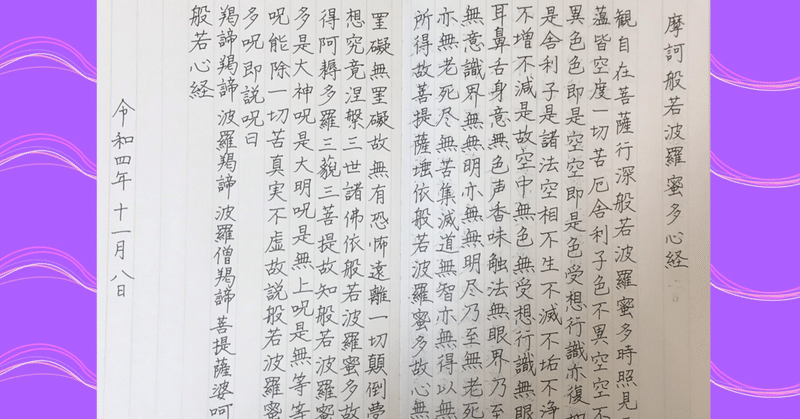 摩訶般若波羅蜜多心経
観自在菩薩行深般若波羅蜜多時照見
薀皆空度一切苦厄舎利子色不異空空不
異色色即是空空即是色受想行識亦復如
是舎利子是諸法空相不生不滅不垢不浄
不増不減是故空中無色無受想行識無眼
耳鼻舌身意無色声香味触法無眼界乃至
無意識界無無明亦無無明尽乃至無老死
亦無老死尽無苦集滅道無智亦無得以無
所得故菩提薩埵依般若波羅蜜多故心無
罣礙無罣礙故無有恐怖遠離一切顛倒夢
想究竟涅槃三世諸佛依般若波羅蜜多故
得阿耨多羅三藐三菩提故知般若波羅蜜
多是大神呪是大明呪是無上呪是無等等
呪能除一切苦真実不虚故説般若波羅蜜
多呪即説呪曰
羯諦羯諦 波羅羯諦 波羅僧羯諦 菩提薩婆呵
般若心経
令和四年 十一月 八日